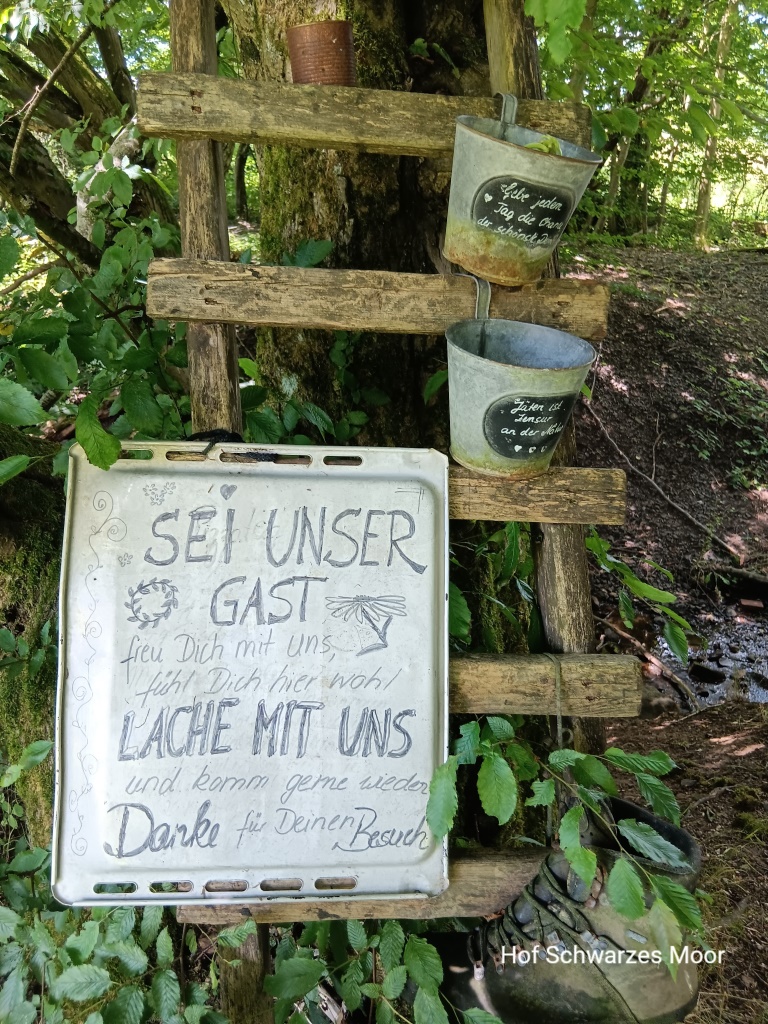 Gebe jeden
Tag die Chance
der schönste
Jäten ist
Zensur
an der Natur
SEI UNSER
GAST
freu Dich mit uns,
fühl Dich hier wohl
LACHE MIT UNS
und komm gerne wieder
Danke für Deinen Besuch
Hof Schwarzes Moor